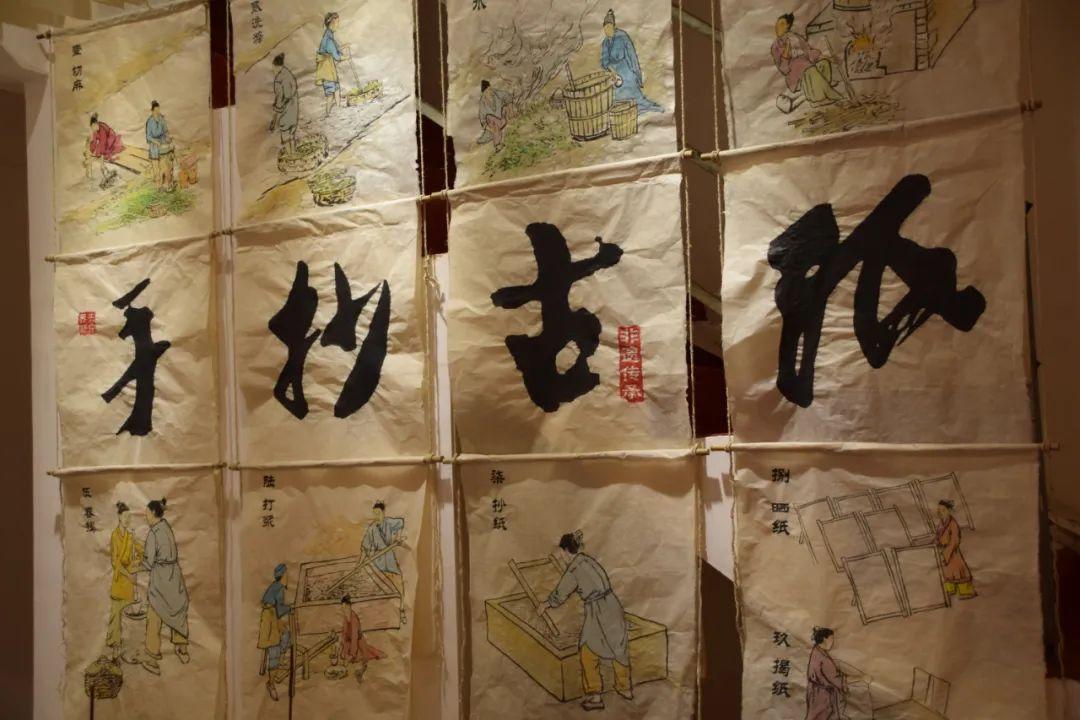 壹 切麻
洗涤
手抄古纸
非遗传承
伍 舂
陆 打浆
柒 抄纸
捌 晒纸
玖 揭纸